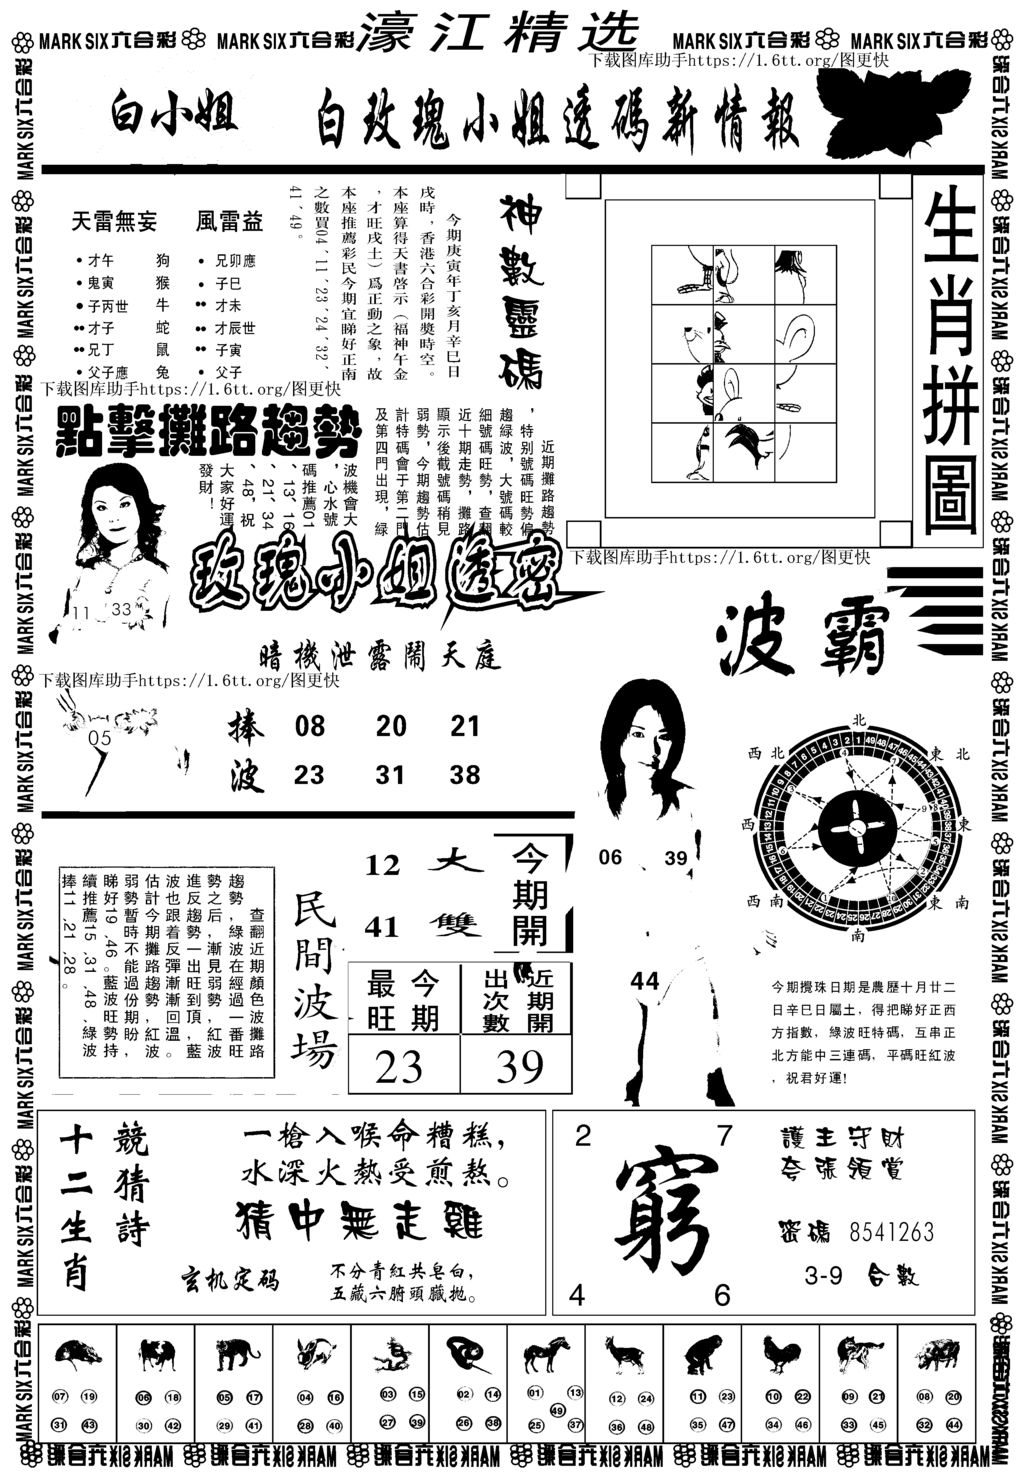 MARK SIX六合彩 MARK SIX六合彩 濠江精选 MARK SIX六合彩 MARK SIX六合彩
下载图库助手https://1.6tt.org/图更快
白小姐 白玫瑰小姐透碼新情報
天雷無妄 風雷益
才午 狗 兄卯應
鬼寅 猴 子巳
子丙世 牛 才未
才子 蛇 才辰世
兄丁 鼠 子寅
父子應 兔 父子
神數靈碼
今期庚寅年丁亥月辛巳日
戌時，香港六合彩開獎時空。
本座算得天書啓示（福神午金
，才旺戌土）爲正動之象，故
本座推薦彩民今期宜睇好正南
之數買04、11、23、24、32、
41、49。
生肖拼圖
下载图库助手https://1.6tt.org/图更快
點擊攤路趨勢
近期攤路趨勢
，特别號碼旺勢偏
趨緑波，大號碼較
細號碼旺勢，查翻
近十期走勢，攤路
顯示後截號碼稍見
弱勢，今期趨勢估
計特碼會于第二門
及第四門出現，緑
波機會大
，心水號
碼推薦01
、13、16
、21、34
、48，祝
大家好運
發財！
11 33
玫瑰小姐透密
暗機泄露鬧天庭
下载图库助手https://1.6tt.org/图更快
下载图库助手https://1.6tt.org/图更快
05
捧 08 20 21
波 23 31 38
波霸
06 39
44
北
西北 東北
西 東
西南 東南
南
今期攪珠日期是農歷十月廿二
日辛巳日屬土，得把睇好正西
方指數，綠波旺特碼，互串正
北方能中三連碼，平碼旺紅波
，祝君好運!
查翻近期顏色波攤路
趨勢，綠波在經過一番旺
勢之后，漸見弱勢，紅波
進反趨勢一出旺到頂，藍
波也跟着反彈漸漸回溫。
估計今期攤路趨勢紅波
弱勢暫時不能過份期盼，
睇好19、46。藍波旺勢持
續推薦15、31、48、綠波
捧11、21、28。
民間波場
12 大
41 雙
今期開
最旺 今期
出次數 近期開
23 39
十二生肖
競猜詩
一槍入喉命糟糕，
水深火熱受煎熬。
猜中無走雞
玄机定码
不分青紅共皂白，
五藏六腑頭臟抛。
2 7
窮
4 6
護主守財
夸張領賞
密碼 8541263
3-9 合數
07 19 31 43
06 18 30 42
05 17 29 41
04 16 28 40
03 15 27 39
02 14 26 38
01 13 49 25 37
12 24 36 48
11 23 35 47
10 22 34 46
09 21 33 45
08 20 32 44